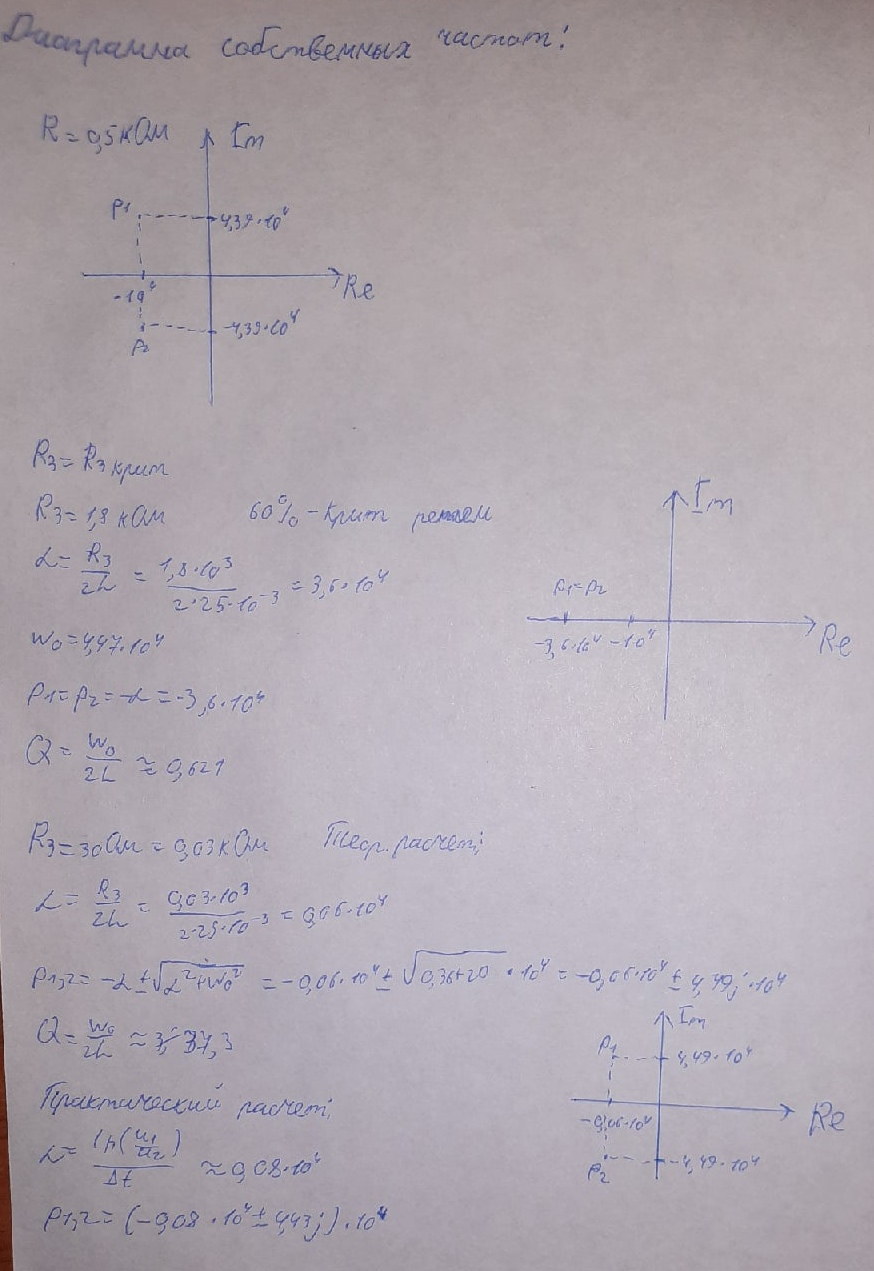 Диаграмма собственных частот:
R = 0,5 кОм
Im
P1
4,39·10⁴
-10⁴
Re
-4,39·10⁴
P2
R3 = R3 крит
R3 = 1,8 кОм 60% - крит режем
α = R3/2L = 1,8·10³/2·25·10⁻³ = 3,6·10⁴
w₀ = 4,47·10⁴
p1 = p2 = -α = -3,6·10⁴
Q = w₀/2L ≈ 0,621
Im
p1 = p2
-3,6·10⁴ -10⁴
Re
R3 = 30 Ом = 0,03 кОм Теор. расчет:
α = R3/2L = 0,03·10³/2·25·10⁻³ = 0,06·10⁴
p1,2 = -α ± √α²+w₀² = -0,06·10⁴ ± √0,36+20 · 10⁴ = -0,06·10⁴ ± 4,49j·10⁴
Q = w₀/2L ≈ 37,3
Im
P1
4,49·10⁴
-0,06·10⁴
Re
P2
-4,49·10⁴
Практический расчет:
α = ln(u1/u2)/Δt ≈ 0,08·10⁴
p1,2 = (-0,08·10⁴ ± 4,43j)·10⁴